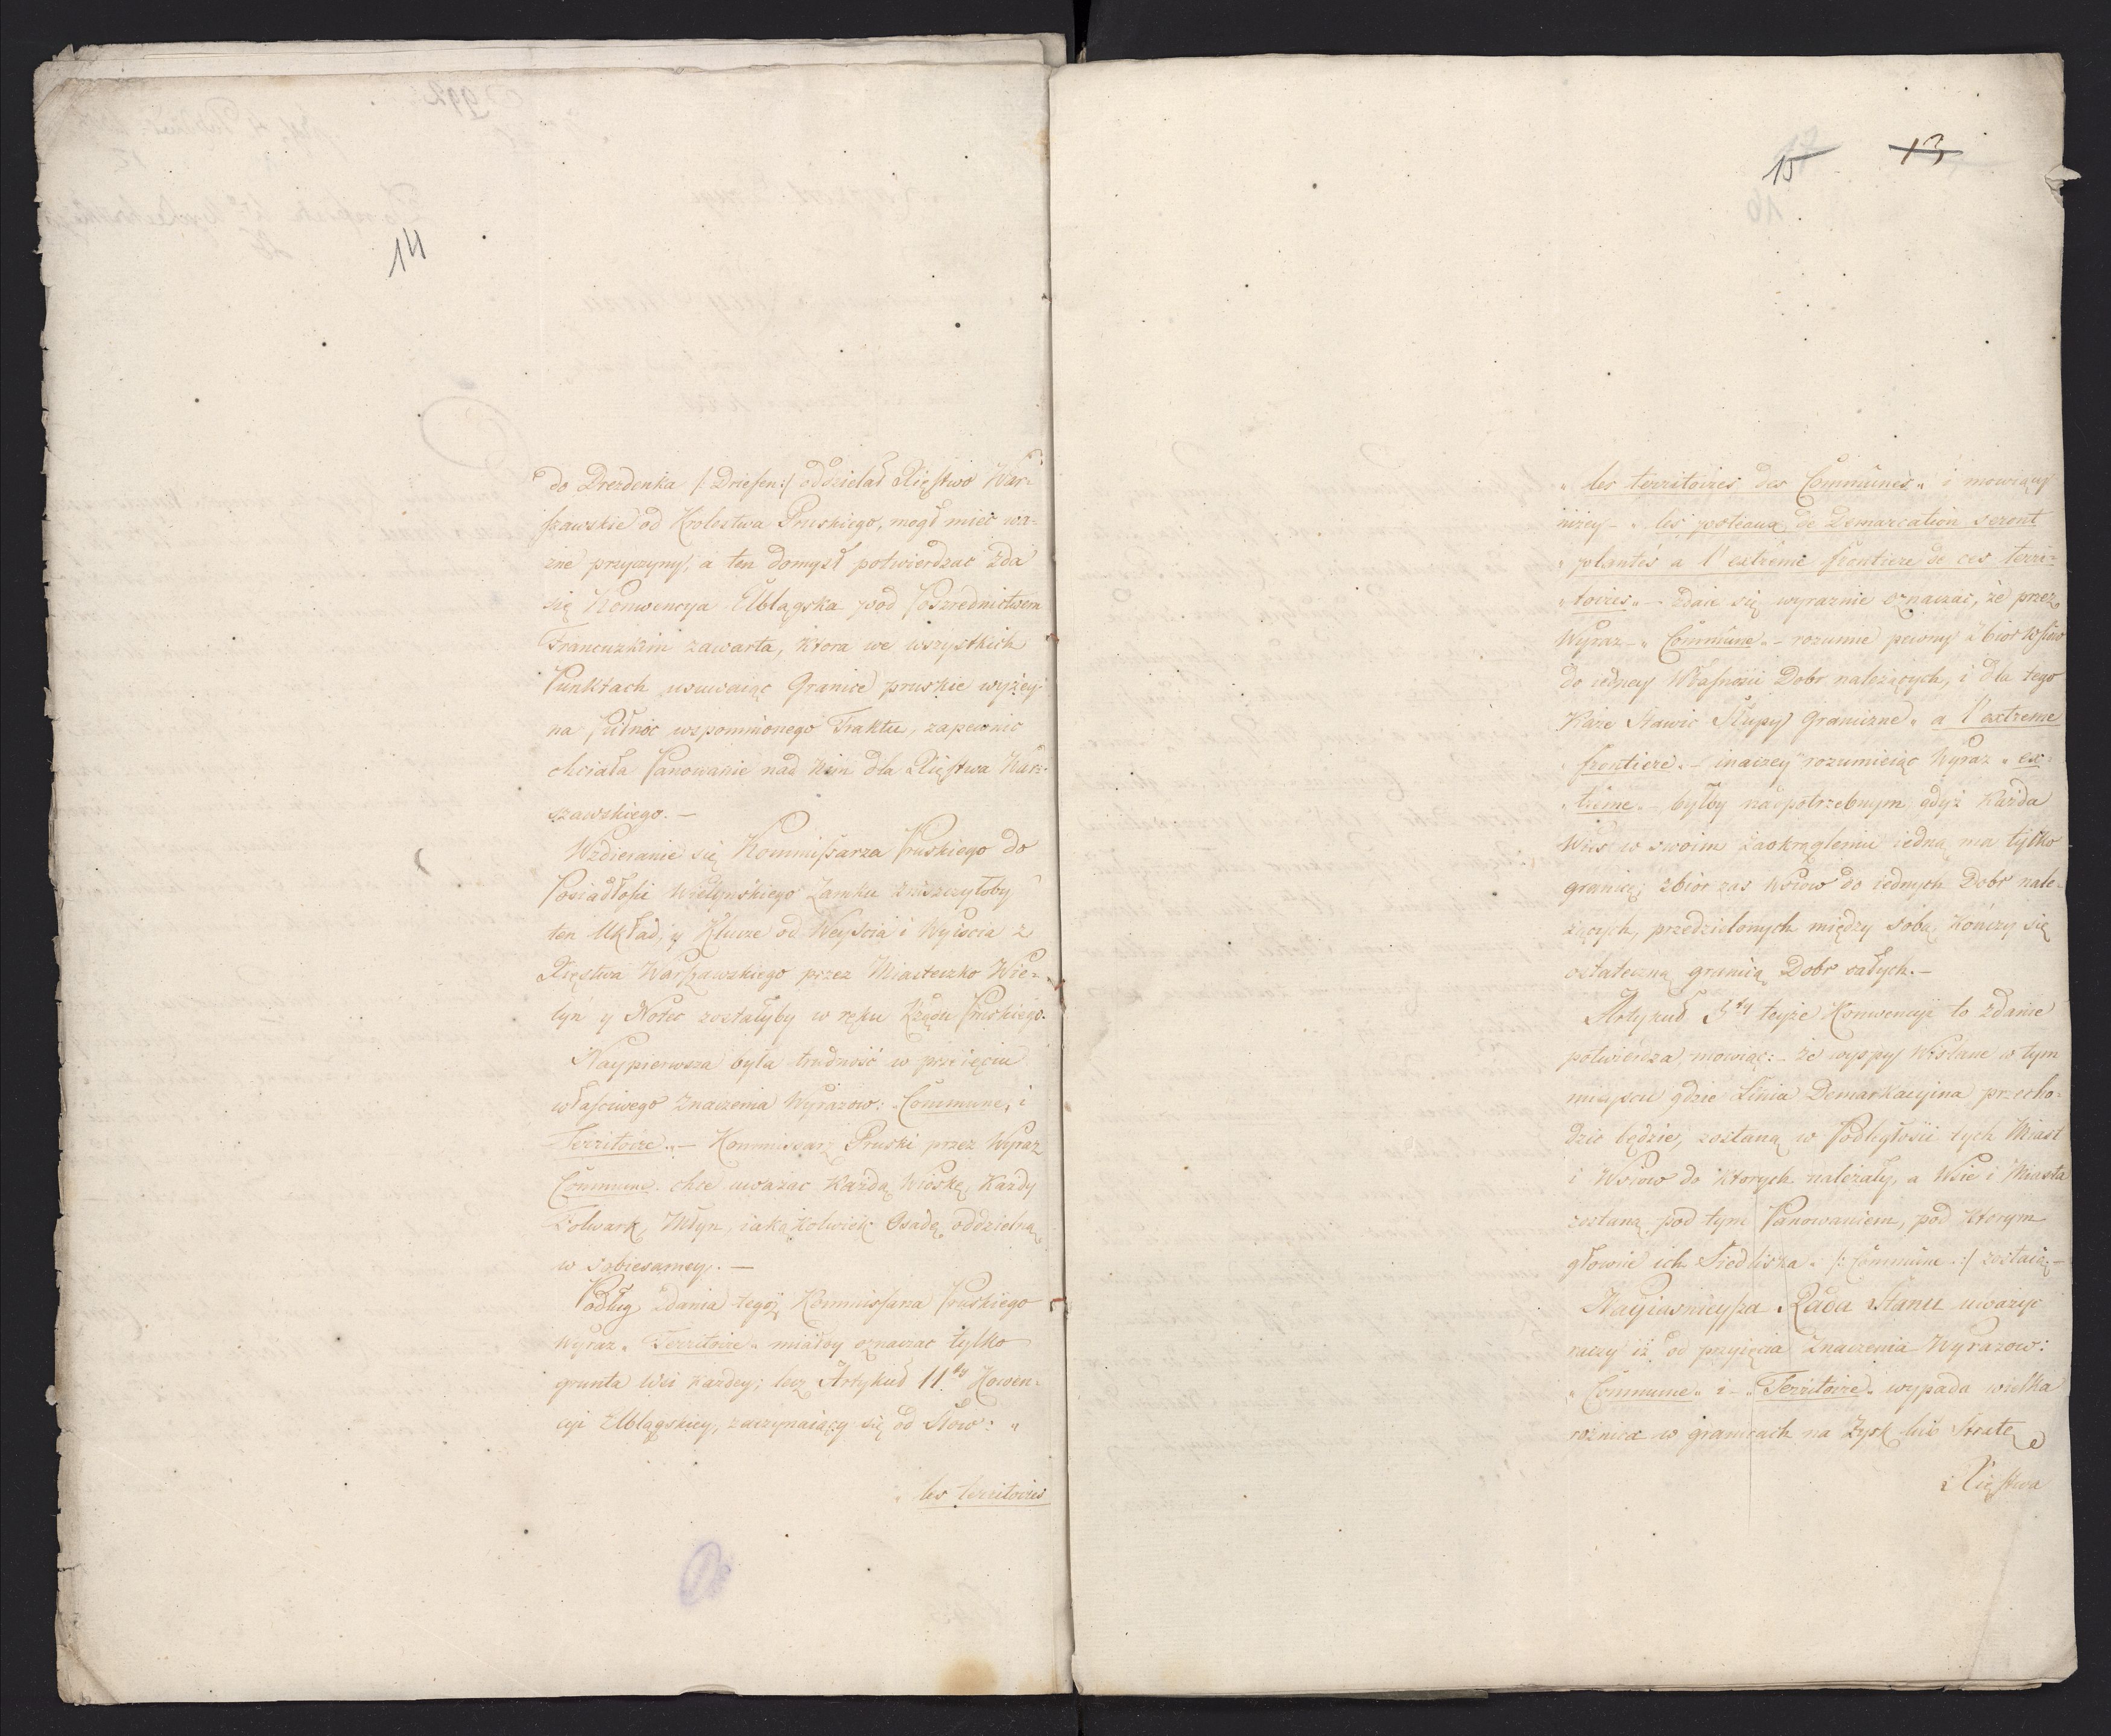 14
do Drezdenka /: Driesen :/ oddzielał Xięstwo War=
szawskie od Krolestwa Pruskiego, mogł mieć wa=
żne przyczyny, a ten domysł potwierdzac zda
się Konwencya Elblągska pod Poszrednistwem
Francuzkim zawarta, ktora we wszystkich
Punktach usuwaiąc Granice pruskie wyżey
na Pułnoc wspomnionego Traktu, zapewnic
chciała Panowanie nad nim dla Xięstwa War=
szawskiego. —
Wzdieranie się Kommissarza Pruskiego do
Posiadłosci Wielynskiego Zamku zniszczyłoby
ten Układ, y Klucze od Weyscia i Wyiscia z
Xięstwa Warszawskiego przez Miasteczko Wie=
lyn y Noteć zostałyby w ręku Rządu Pruskiego.
Naypierwsza była trudność w przeięciu
właściwego Znaczenia Wyrazow: „Commune„ i
„Territoire„ — Kommissarz Pruski przez Wyraz
Commune chce uwazac Każdą Wioskę, Kazdy
Folwark, Młyn, iakążkolwiek Osadę, oddzielną
w sobiesamey. —
Podług zdania tegoż Kommissarza Pruskiego
wyraz „Territoire„ miałby oznaczac tylko
grunta Wsi każdey; lecz Artykuł 11ty Kowen=
cyi Elblągskiey, zaczynaiący się od Słow: „
„les territoires
15 13
16
„les territoires des Communes„ i mowiący
niżey — „les poteaux de Demarcation seront
„plantés a l'extréme frontiere de ces terri=
„toires„ — zdaie się wyraznie oznaczać, że przez
Wyraz — „Commune„ — rozumie pewny zbior Wsiow
do iedney Własnosci Dobr należących, i dla tego
Każe stawic Słupy Graniczne „a l'extreme
„frontiere„ — inaczey rozumieiąc Wyraz „ex=
„treme„ — byłby nadpotrzebnym gdyż Każda
Wies w swoim zaokrągleniu iedną ma tylko
granicę; zbior zas Wsiow do iednych Dobr nale=
żących, przedzielonych między sobą, Kończy się
ostateczną granicą Dobr całych. —
Artykuł 5ty teyże Konwencyi to zdanie
potwierdza mowiąc: — że wyspy Wislane w tym
mieyscu gdzie Linia Demarkacyina przecho=
dzic będzie, zostaną w Podległosci tych Miast
i Wsiow do ktorych należały, a Wsie i Miasta
zostaną pod tym Panowaniem, pod ktorym
głowne ich Siedliska /: Commune :/ zostaią. —
Nayiasnieysza Rada Stanu uważyć
raczy iż od przyięcia Znaczenia Wyrazow:
„Commune„ i — „Territoire„ wypada wielka
rożnica w granicach na Zysk lub Stratę
Xięstwa